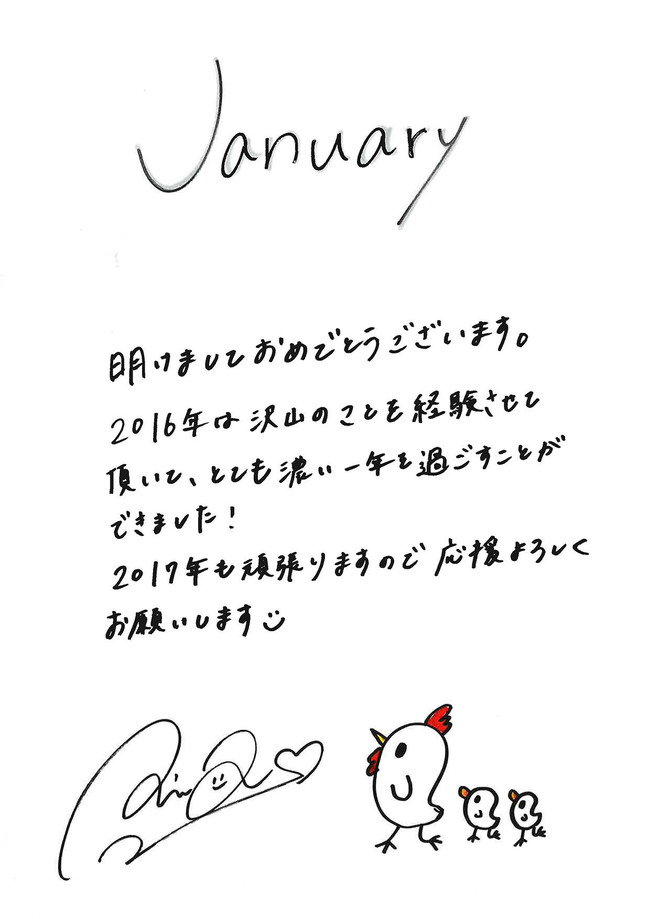 January
明けましておめでとうございます。
2016年は沢山のことを経験させて
頂いて、とても濃い一年を過ごすことが
できました！
2017年も頑張りますので応援よろしく
お願いします